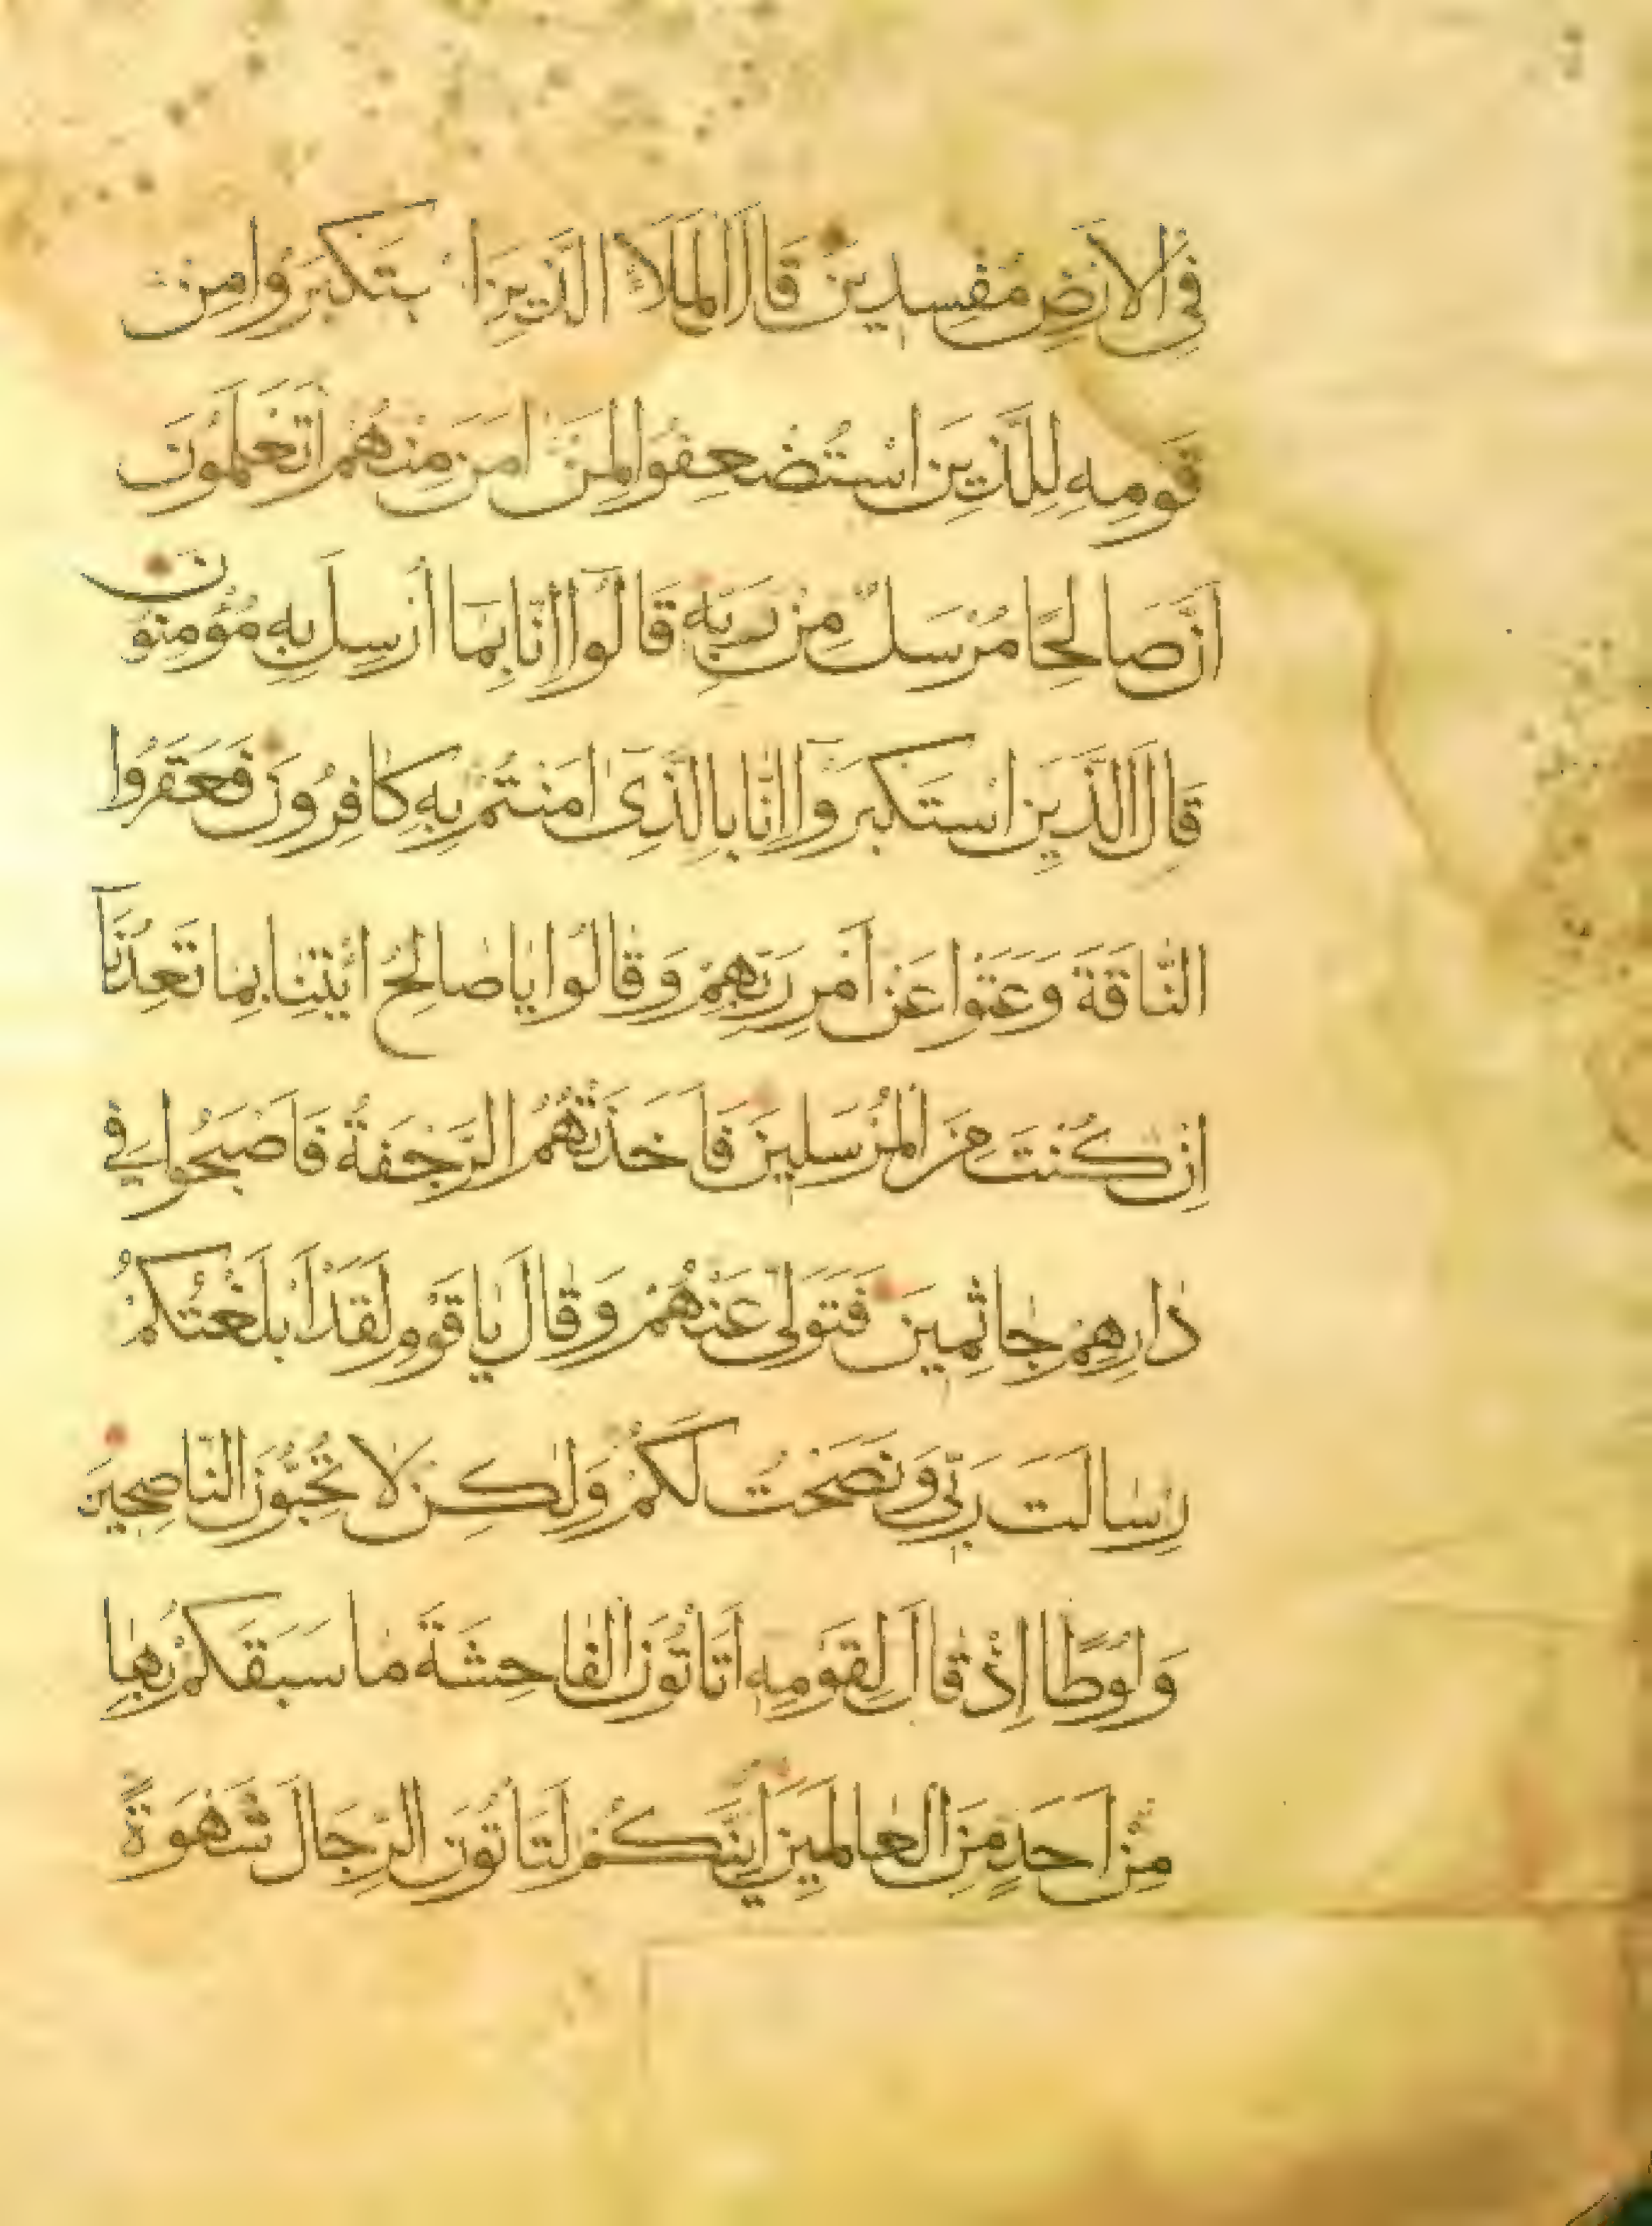 فِي الْاَرْضِ مُفْسِدِينَ قَالَ الْمَلَاُ الَّذِينَ اسْتَكْبَرُوا مِنْ
قَوْمِهِ لِلَّذِينَ اسْتُضْعِفُوا لِمَنْ اٰمَنَ مِنْهُمْ اَتَعْلَمُونَ
اَنَّ صَالِحًا مُرْسَلٌ مِنْ رَبِّهِ قَالُوا اِنَّا بِمَا اُرْسِلَ بِهِ مُؤْمِنُونَ
قَالَ الَّذِينَ اسْتَكْبَرُوا اِنَّا بِالَّذِى اٰمَنْتُمْ بِهِ كَافِرُونَ فَعَقَرُوا
النَّاقَةَ وَعَتَوْا عَنْ اَمْرِ رَبِّهِمْ وَقَالُوا يَا صَالِحُ ائْتِنَا بِمَا تَعِدُنَا
اِنْ كُنْتَ مِنَ الْمُرْسَلِينَ فَاَخَذَتْهُمُ الرَّجْفَةُ فَاَصْبَحُوا فِي
دَارِهِمْ جَاثِمِينَ فَتَوَلّٰى عَنْهُمْ وَقَالَ يَا قَوْمِ لَقَدْ اَبْلَغْتُكُمْ
رِسَالَتَ رَبِّي وَنَصَحْتُ لَكُمْ وَلٰكِنْ لَا تُحِبُّونَ النَّاصِحِينَ
وَلُوطًا اِذْ قَالَ لِقَوْمِهِ اَتَاْتُونَ الْفَاحِشَةَ مَا سَبَقَكُمْ بِهَا
مِنْ اَحَدٍ مِنَ الْعَالَمِينَ اَئِنَّكُمْ لَتَاْتُونَ الرِّجَالَ شَهْوَةً